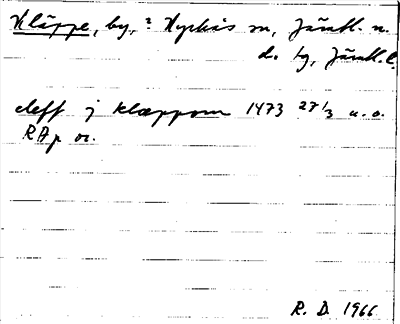 Kläppe, by, ? Hyckås sn, Jämtl. n.
d. tg, Jämtl. l.
deff j klæppom 1473 27/3 u. o.
RAp or.
R. D. 1966